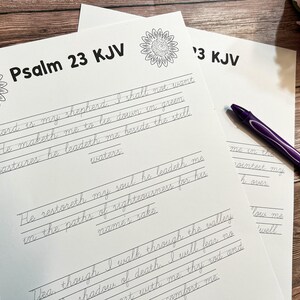 Psalm 23 KJV
Lord is my shepherd I shall not want
He maketh me to lie down in green
pastures he leadeth me beside the still
waters
He restoreth my soul he leadeth me
in the paths of righteousness for his
names sake
Yea, though I walk through the valley
shadow of death, I will fear no
art with me thy rod and
comfort me
23 KJV
me in the
anointest my
over
follow me
well